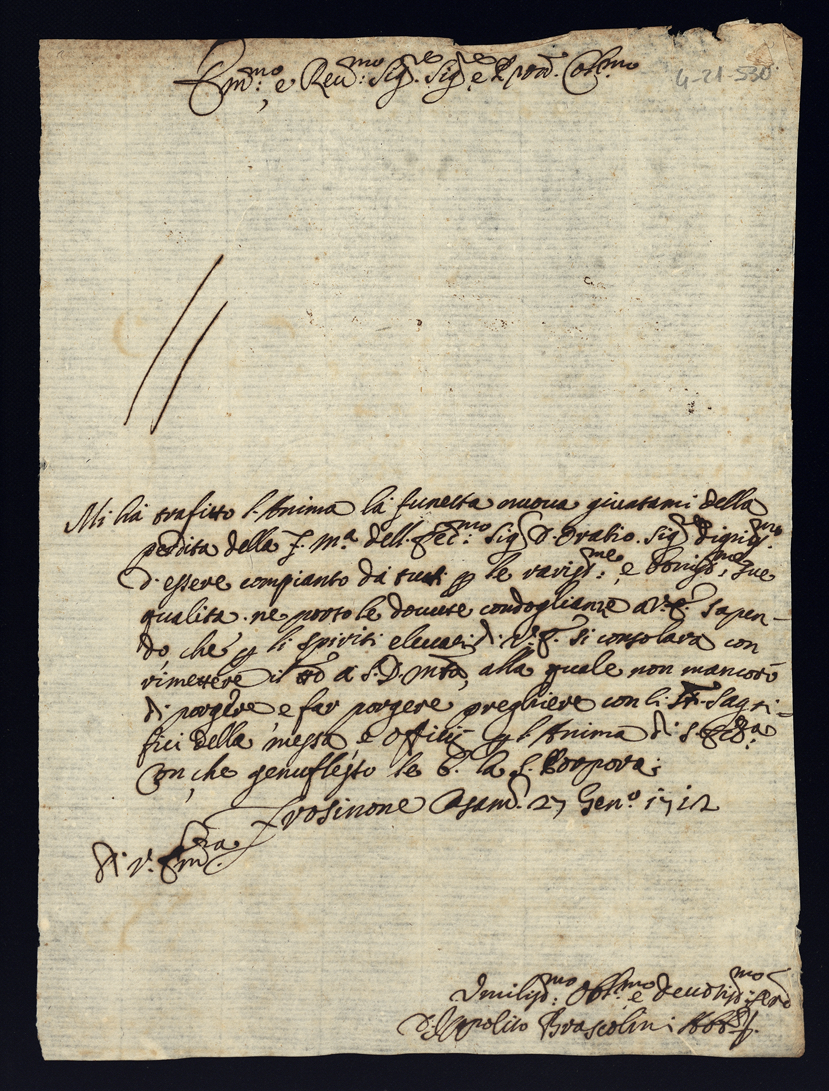 Em.mo e Reu.mo Sig.re Sig.re e P.ron. Col.mo
4-21-530
Mi hà trafitto l'Anima la funesta nuoua giuntami della
perdita della f. m.a dell' Ecc.mo Sig.r D. Oratio. Sig.r
d'essere compianto da tutti p le rariss.me, e boniss.me sue
qualita. ne porto le douute condoglianze a V. E. Sapen-
do che p li spiriti eleuati di V. E. si consolarà con
rimettere il tto a S. D. Mtà, alla quale non mancorò
di porgere e far porgere preghiere con li Sti. Sagri-
fici della messa e Officij p l'Anima di S. Ecc.za
Con che genuflesso le b. la S. Porpora.
Frosinone 27 Gen.o 1712
Di V. Em.za
Vmiliss.mo Obl.mo e deuotiss.mo
D. Ippolito